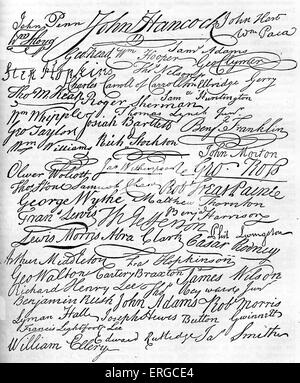 John Penn John Hancock John Hart
Wm Floyd Wm Paca
Geo Read Wm Hooper Saml Adams
Step Hopkins Tho Nelson jr Geo Clymer
Charles Carroll of Carrollton Elbridge Gerry
Tho M:Kean Roger Sherman Saml Huntington
Wm Whipple Thomas Lynch Junr
Geo Taylor Josiah Bartlett Benj Franklin
Wm Williams Richd Stockton
John Morton
Oliver Wolcott Jno Witherspoon Geo Ross
Thos Stone Samuel Chase Robt Treat Paine
George Wythe Matthew Thornton
Fran Lewis Th Jefferson Benj Harrison
Lewis Morris Abra Clark Phil Livingston
Caesar Rodney
Arthur Middleton Fras Hopkinson
Geo Walton Carter Braxton James Wilson
Richard Henry Lee Tho Heyward Junr
Benjamin Rush John Adams Robt Morris
Lyman Hall Joseph Hewes Button Gwinnett
Francis Lightfoot Lee
William Ellery Edward Rutledge Ja Smith
alamy stock photo
ERGCE4